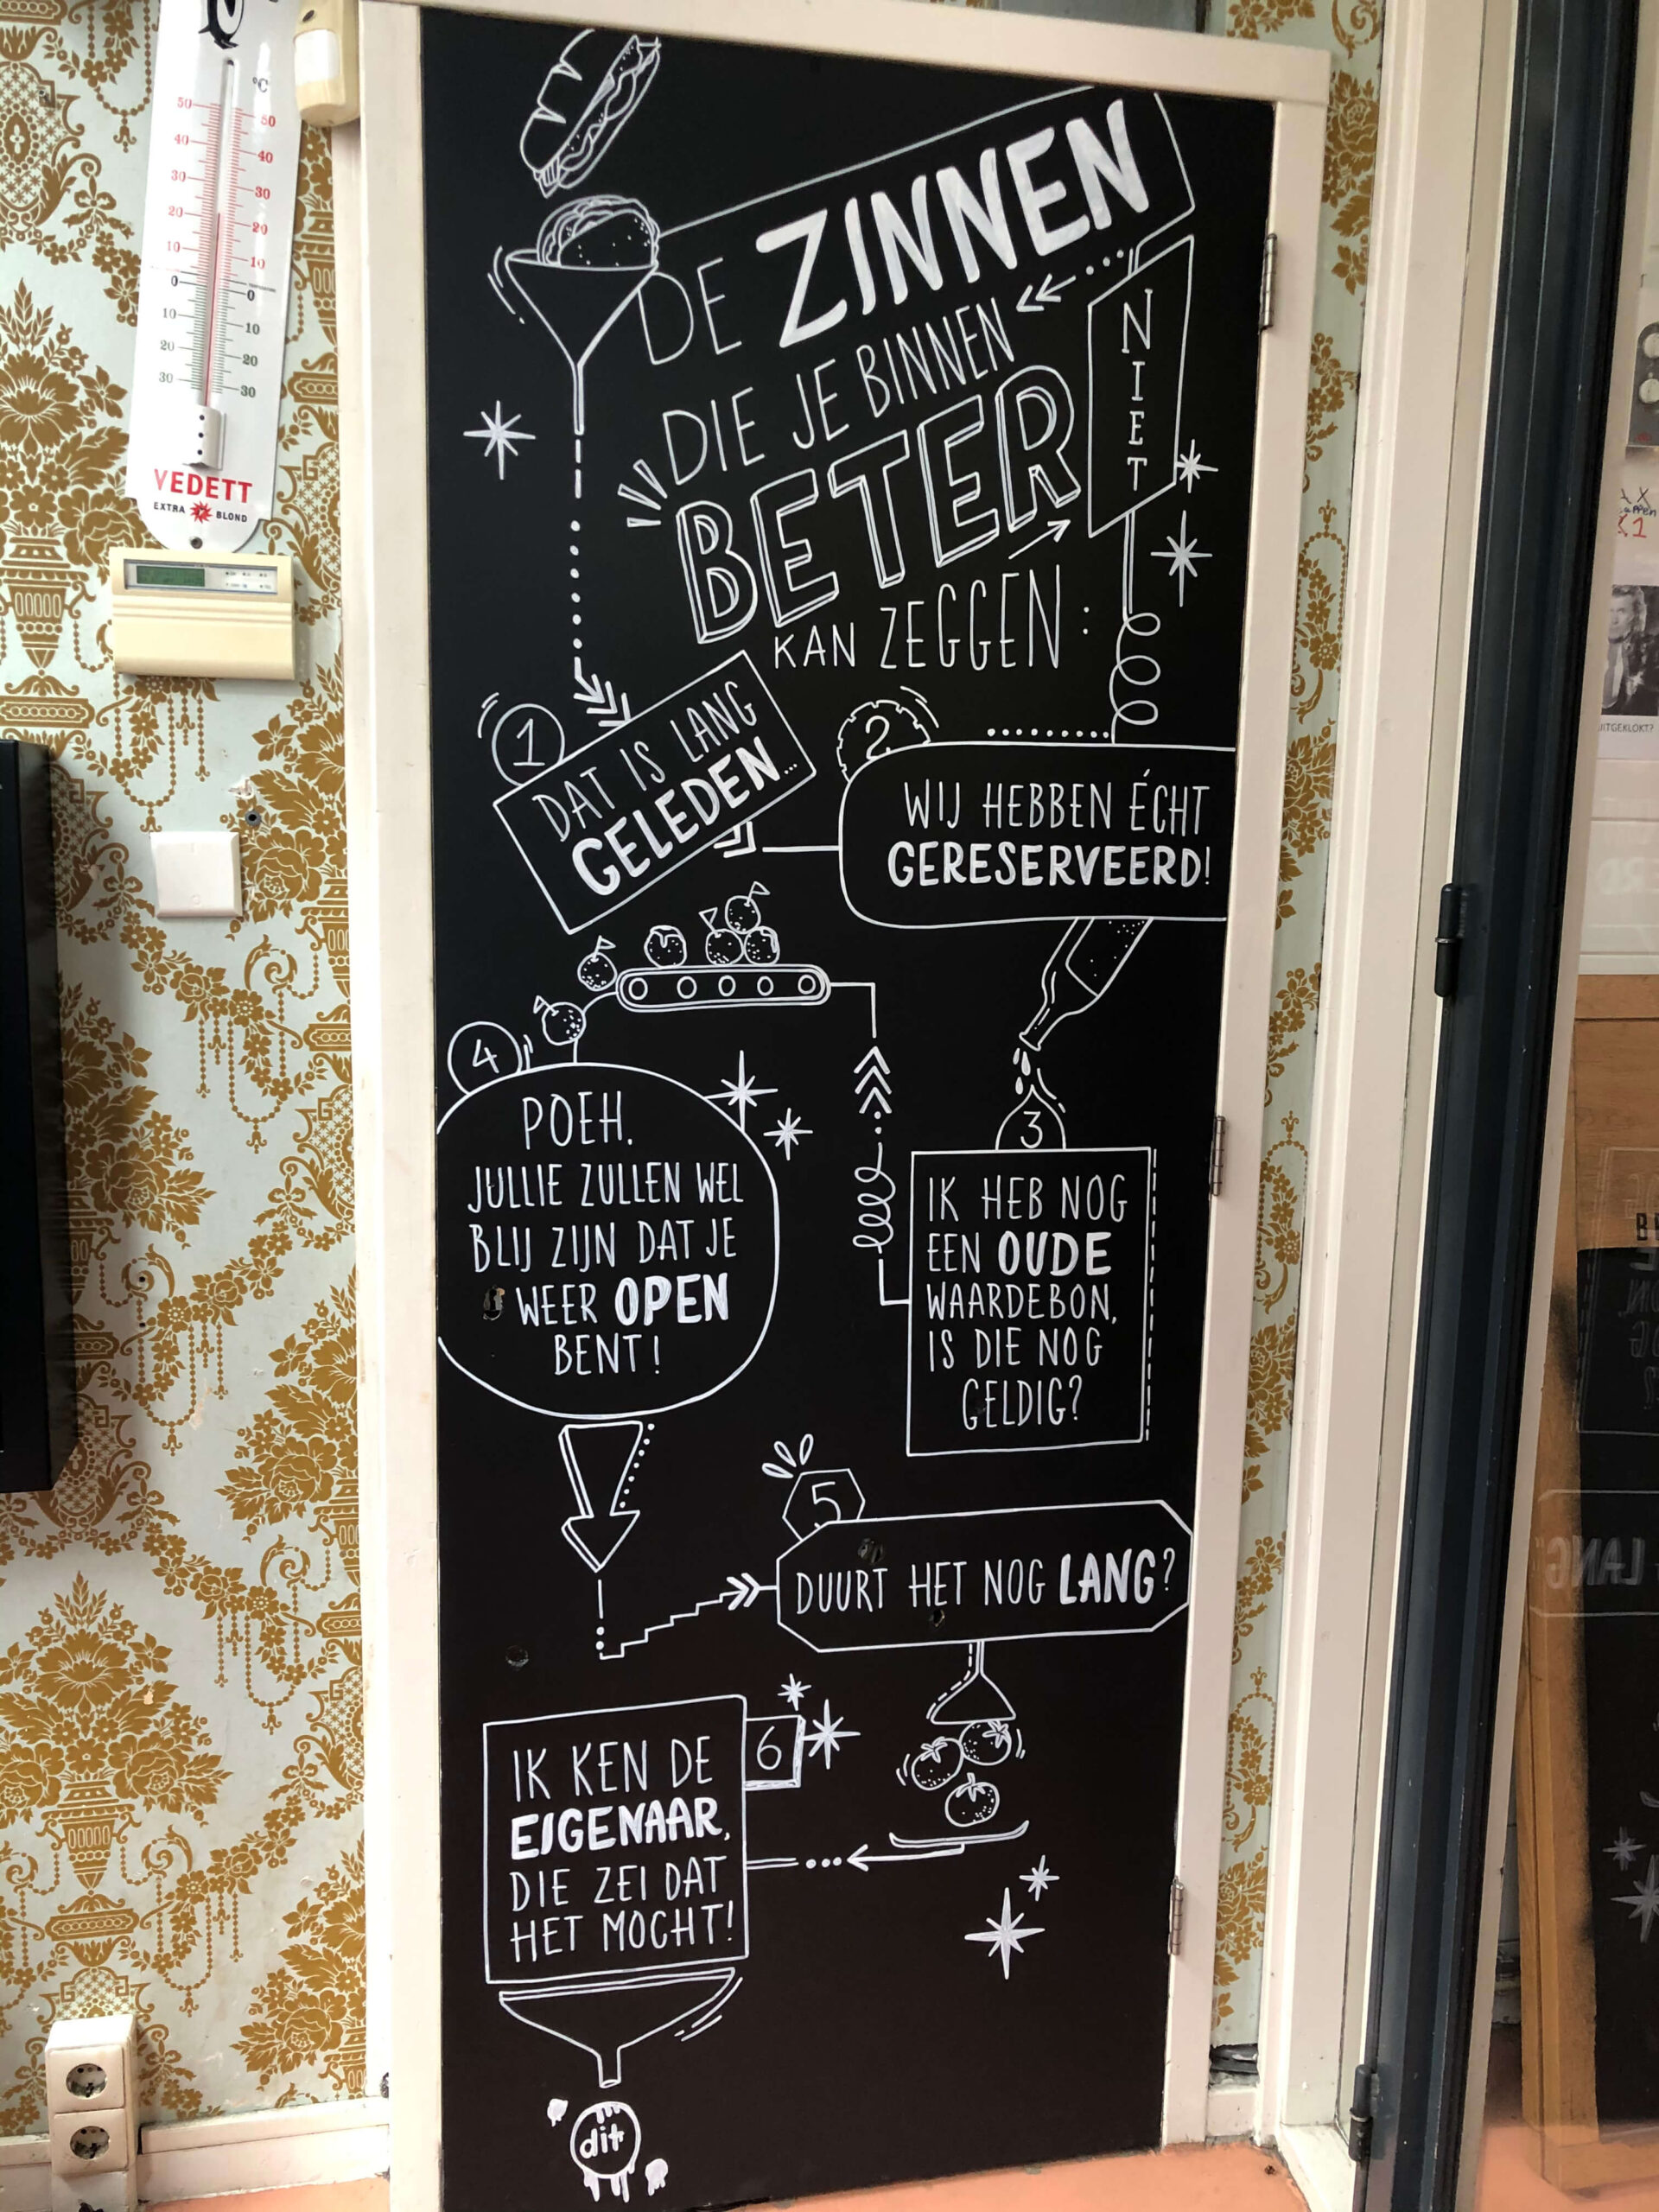 °C
50
50
40
40
30
30
20
20
10
10
0
0
10
10
20
20
30
30
VEDETT
EXTRA BLOND
DE ZINNEN
DIE JE BINNEN
BETER
NIET
KAN ZEGGEN:
1
DAT IS LANG
GELEDEN...
2
WIJ HEBBEN ÉCHT
GERESERVEERD!
3
IK HEB NOG
EEN OUDE
WAARDEBON,
IS DIE NOG
GELDIG?
4
POEH.
JULLIE ZULLEN WEL
BLIJ ZIJN DAT JE
WEER OPEN
BENT!
5
DUURT HET NOG LANG?
6
IK KEN DE
EIGENAAR,
DIE ZEI DAT
HET MOCHT!
dit
UITGEKLOKT?
LANG